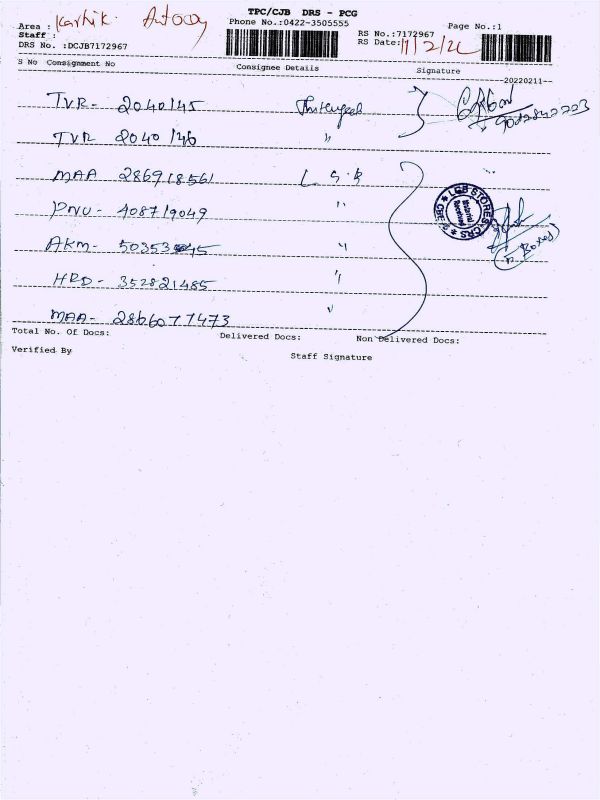 TPC/CJB DRS - PCG
Area : Karthik.
Phone No.:0422-3505555
Page No.:1
Staff :
RS No.:7172967
DRS No. :DCJB7172967
RS Date: 11/2/22
S No Consignment No Consignee Details Signature
--20220211--
TVR - 2040145
TVR 2040146 "
MAA 286918561 L G B
PNU - 408719049 "
AKM - "
HRD - 352821485 "
MAA - 2866077473 "
LGB STORES-CRS
Material
Received
Total No. Of Docs: Delivered Docs: Non Delivered Docs:
Verified By Staff Signature